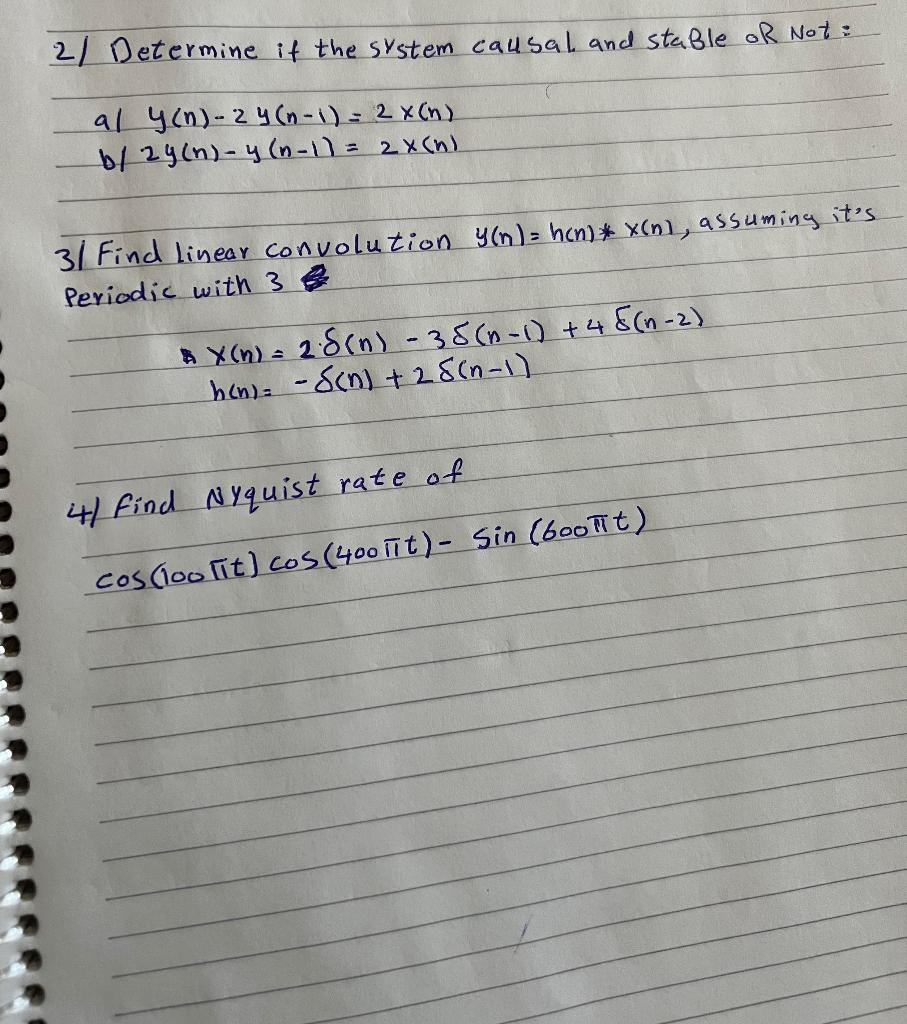 2/ Determine if the system causal and staBle oR Not:
a/ y(n)-2y(n-1)= 2x(n)
b/ 2y(n)-y(n-1)= 2x(n)
3/ Find linear convolution y(n)=h(n)*x(n), assuming it's
Periodic with 3
x(n)= 2·δ(n) -3δ(n-1) +4δ(n-2)
h(n)= -δ(n) +2δ(n-1)
4/ find Nyquist rate of
cos(100πt)cos(400πt)- sin(600πt)